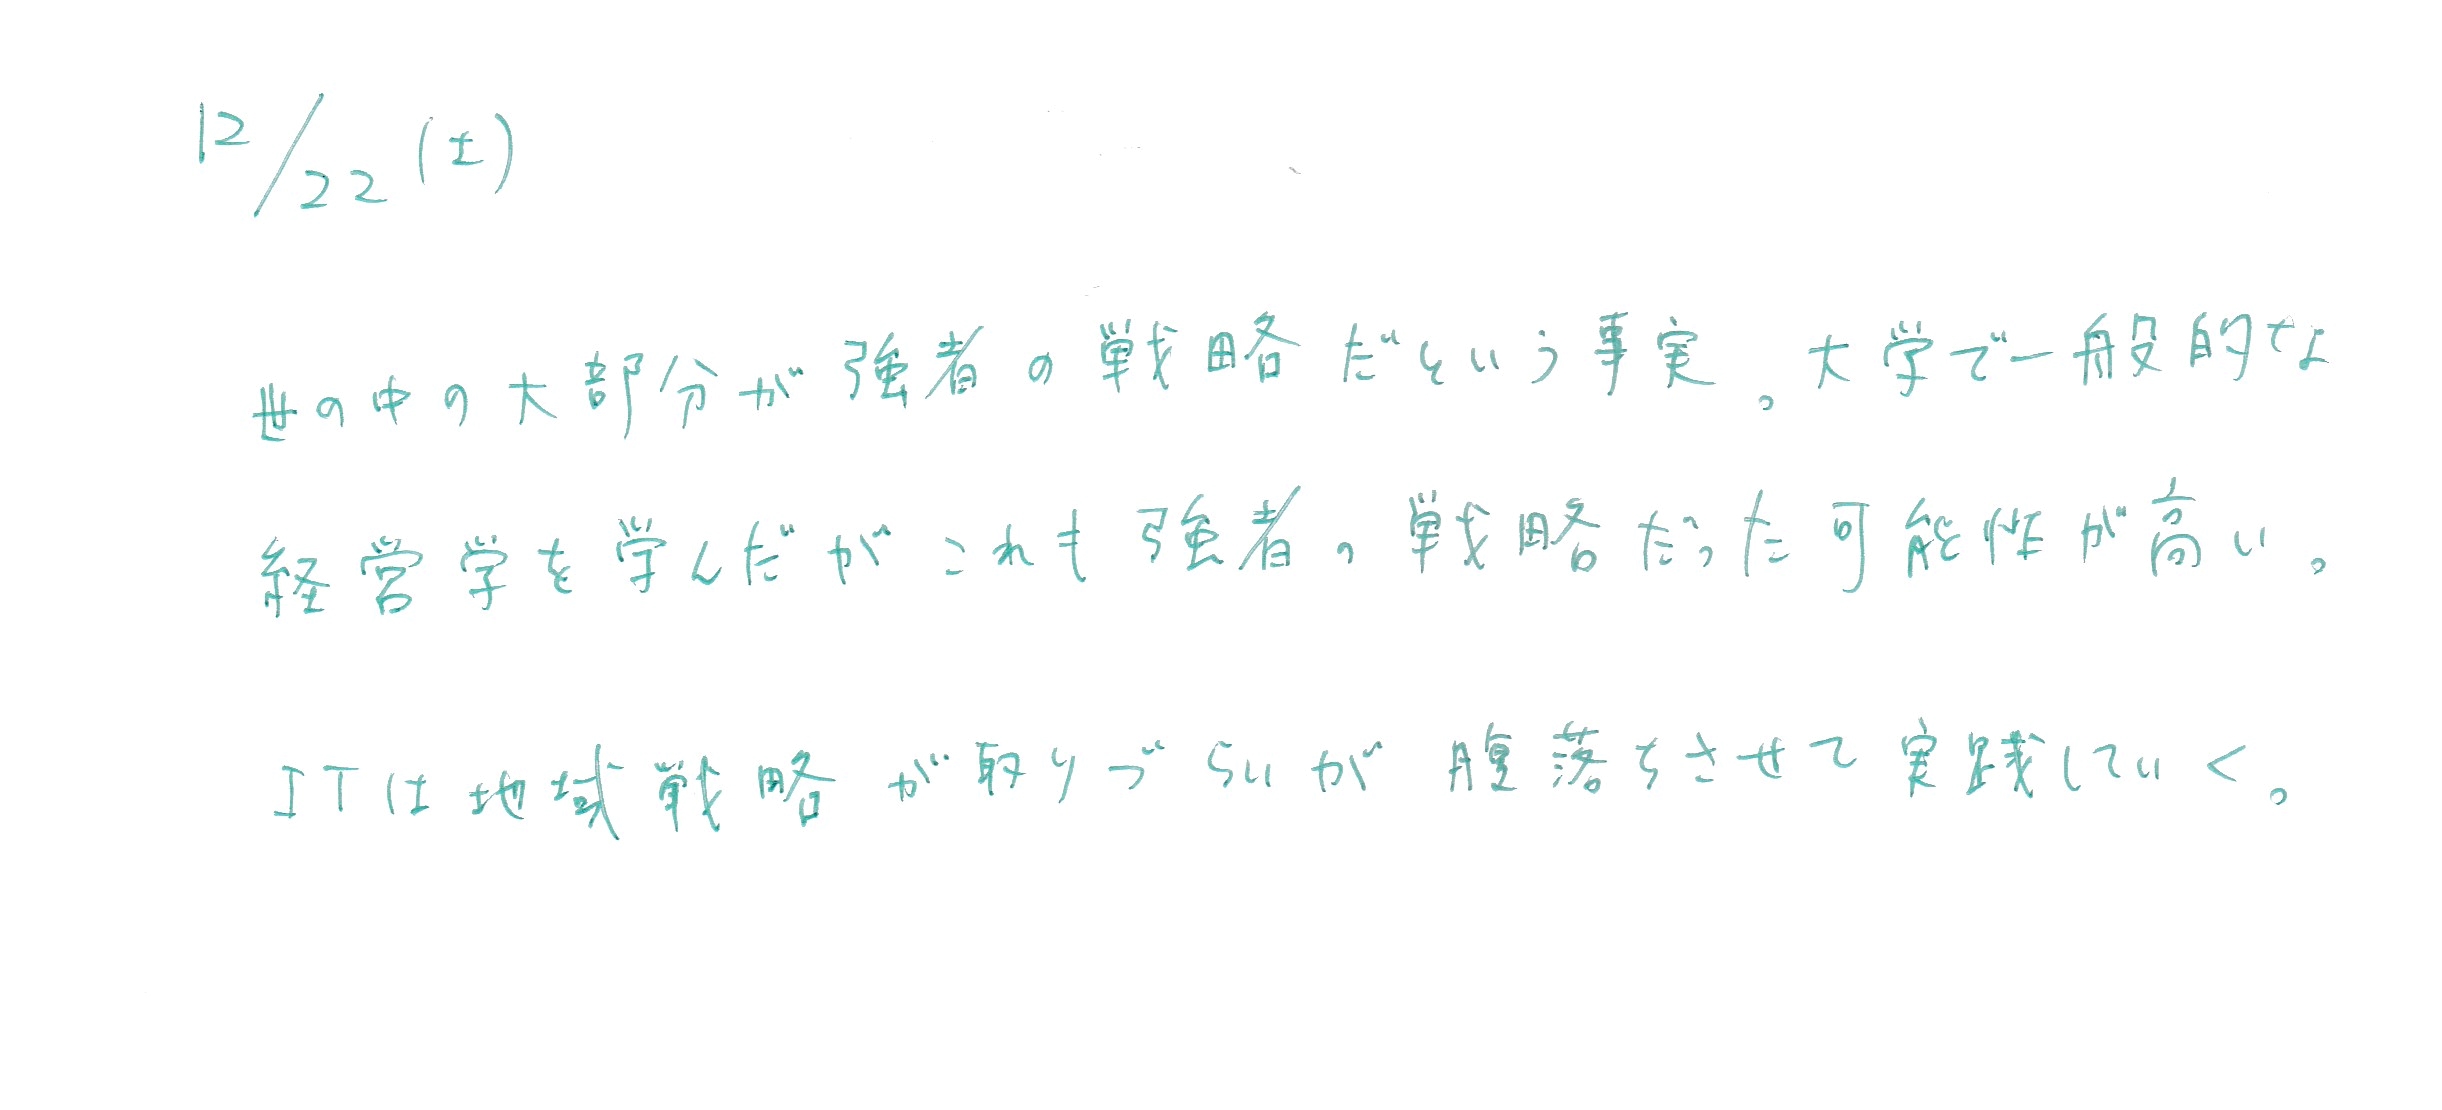 12/22(土)
世の中の大部分が強者の戦略だという事実。大学で一般的な
経営学を学んだがこれも強者の戦略だった可能性が高い。
ITは地域戦略が取りづらいが腹落ちさせて実践していく。